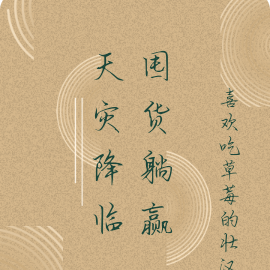 天灾降临
囤货躺赢
喜欢吃草莓的壮汉